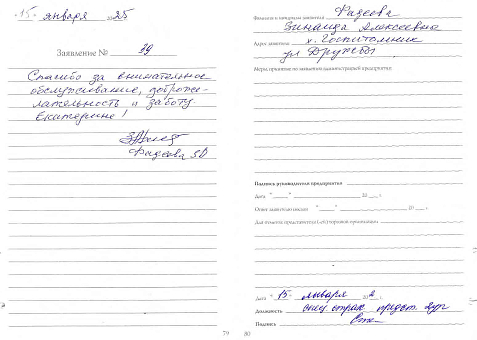 "15" января 2025
Заявление № 39
Спасибо за внимательное
обслуживание, доброже-
лательность и заботу
Екатерине!
Фадеева ЗА
79
Фамилия и инициалы заявителя Фадеева
Зинаида Алексеевна
Адрес заявителя х. Госпитомник
ул Дружбы
Меры, принятые по заявлению администрацией предприятия:
Подпись руководителя предприятия
Дата " " 20 г.
Ответ заявителю выслан " " 20 г.
Для отметок представителя
Дата "15" января 202
Должность
Подпись
80